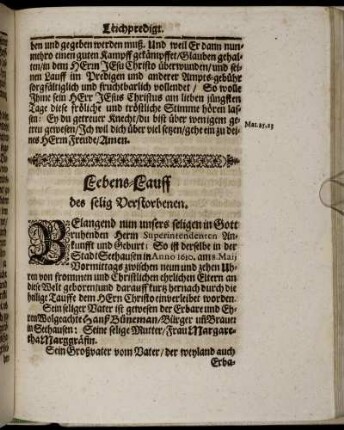 Leichpredigt.
ben und gegeben werden muß. Und weil Er dann nun-
mehro einen guten Kampff gekämpffet/Glauben gehal-
ten/in dem HErrn JEsu Christo überwunden/und sei-
nen Lauff im Predigen und anderer Ampts-gebühr
sorgfältiglich und fruchtbarlich vollendet/ So wolle
Jhme sein HErr JEsus Christus am lieben jüngsten
Tage diese fröliche und tröstliche Stimme hören las-
sen: Ey du getreuer Knecht/du bist über wenigem ge-
treu gewesen/Jch wil dich über viel setzen/gehe ein zu dei-
nes HErrn Freude/Amen.
Mat. 25. 23
Lebens-Lauff
des selig Verstorbenen.
BElangend nun unsers seligen in Gott
ruhenden Herrn Superintendenten An-
kunfft und Geburt: So ist derselbe in der
Stadt Seehausen in Anno 1630. am 2. Maij
Vormittags zwischen neun und zehen Uh-
ren von frommen und Christlichen ehrlichen Eltern an
diese Welt geboren und darauff kurtz hernach durch die
heilige Tauffe dem HErrn Christo einverleibet worden.
Sein seliger Vater ist gewesen der Erbare und Eh-
ren Wolgeachte Hanß Büneman/Bürger uñ Brauer
in Seehausen: Seine selige Mutter/Frau Margare-
tha Marggräfin.
Sein Großvater vom Vater/der weyland auch
Erba-